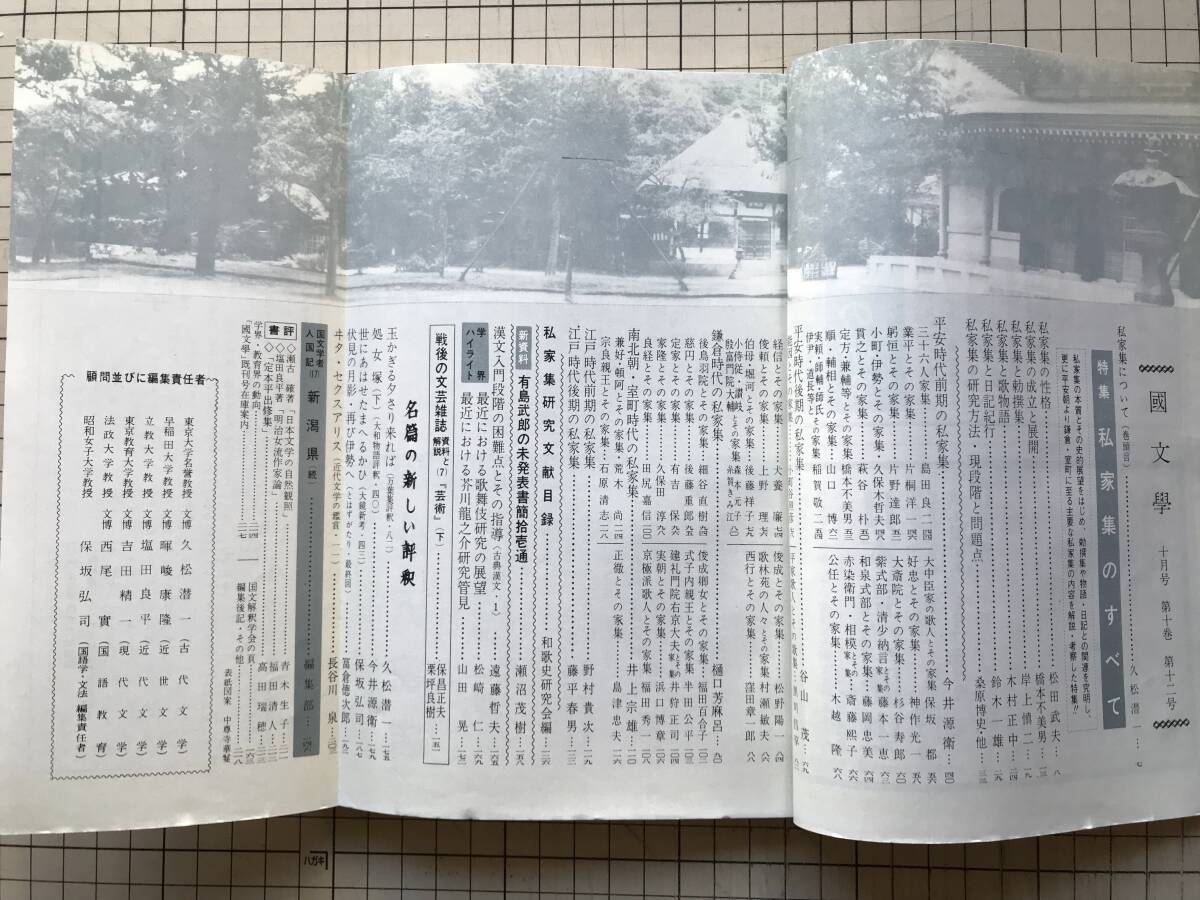 國文學 十月号 第十巻 第十二号
私家集について(巻頭言)……久松潜一…七
特集 私家集のすべて
私家集の本質とその史的展望をはじめ、勅撰集や物語・日記との関連を究明し、
更に平安朝より鎌倉・室町に至る主要な私家集の内容を解説・考察した特集!!
私家集の性格……松田武夫 八
私家集の成立と展開……橋本不美男
私家集と勅撰集……岸上慎二
私家集と歌物語……木村正中
私家集と日記紀行……鈴木一雄
私家集の研究方法・現段階と問題点……桑原博史・他
平安時代前期の私家集……今井源衛 四〇
三十六人家集……島田良二
業平とその家集……片桐洋一
躬恒とその家集……片野達郎
小町・伊勢とその家集……久保木哲夫
貫之とその家集……萩谷朴
定方・兼輔等とその家集…橋本不美男
順・輔相とその家集……山口博
実頼・師輔・師氏・伊尹・道長等とその家集 稲賀敬二
大中臣家の歌人とその家集 保坂都
好忠とその家集……神作光一
大斎院とその家集……杉谷寿郎
和泉式部とその家集……藤岡忠美
紫式部・清少納言とその家集 藤本一恵
赤染衛門・相模とその家集…斎藤熙子
公任とその家集……木越隆
平安時代後期の私家集……谷山茂
経信とその家集……犬養廉
俊頼とその家集……上野理
伯母・堀河とその家集……後藤祥子
小侍従・讃岐とその家集 森本元子
殷富門院大輔とその家集 糸賀きみ江
俊成とその家集……松野陽一
歌林苑の人々とその家集 村瀬敏夫
西行とその家集……窪田章一郎
鎌倉時代の私家集……樋口芳麻呂
後鳥羽院とその家集……細谷直樹
慈円とその家集……後藤重郎
定家とその家集……有吉保
家隆とその家集……久保田淳
良経とその家集……田尻嘉信
俊成卿女とその家集……福田百合子
式子内親王とその家集…半田公平
建礼門院右京大夫とその家集 井狩正司
実朝とその家集……浜口博章
京極派歌人とその家集…福田秀一
南北朝・室町時代の私家集……井上宗雄
兼好・頓阿とその家集……荒木尚
宗良親王とその家集……石原清志
正徹とその家集……島津忠夫
江戸時代前期の私家集……野村貴次
江戸時代後期の私家集……藤平春男
私家集研究文献目録……和歌史研究会編
新資料 有島武郎の未発表書簡拾壱通……瀬沼茂樹
漢文入門段階の困難点とその指導(古典漢文・1)……遠藤哲夫
学界ハイライト
最近における歌舞伎研究の展望……松崎仁
最近における芥川龍之介研究管見……山田晃
戦後の文芸雑誌 資料と解説 (7)『芸術』(下)……保昌正夫 栗坪良樹
名篇の新しい評釈
玉かぎる夕さり来れば(万葉集評釈・八二)……久松潜一
処女塚(下)(大和物語評釈・四〇)……今井源衛
世にかはせたまへるかひ(大鏡新考・四三)……保坂弘司
伏見の月影・再び伊勢へ(とはずがたり・最終回)……冨倉徳次郎
ヰタ・セクスアリス(近代文学の鑑賞・一一)……長谷川泉
国文学者人国記(17) 新潟県(続)……編集部
書評
◇瀬古確著『日本文学の自然観照』……青木生子
◇塩田良平著『明治女流作家論』……福田清人
◇『定本水平出修集』……高田瑞穂
学界・教育界の動向
『國文學』既刊号在庫案内
国文解釈学会の頁
編集後記・その他
表紙図案 中尊寺華鬘
顧問並びに編集責任者
東京大学名誉教授 文博 久松潜一(古代文学)
早稲田大学教授 文博 暉峻康隆(近世文学)
立教大学教授 文博 塩田良平(近代文学)
東京教育大学教授 文博 吉田精一(現代文学)
法政大学教授 文博 西尾實(国語教育)
昭和女子大学教授 保坂弘司(国語学・文法 編集責任者)
ハガキ